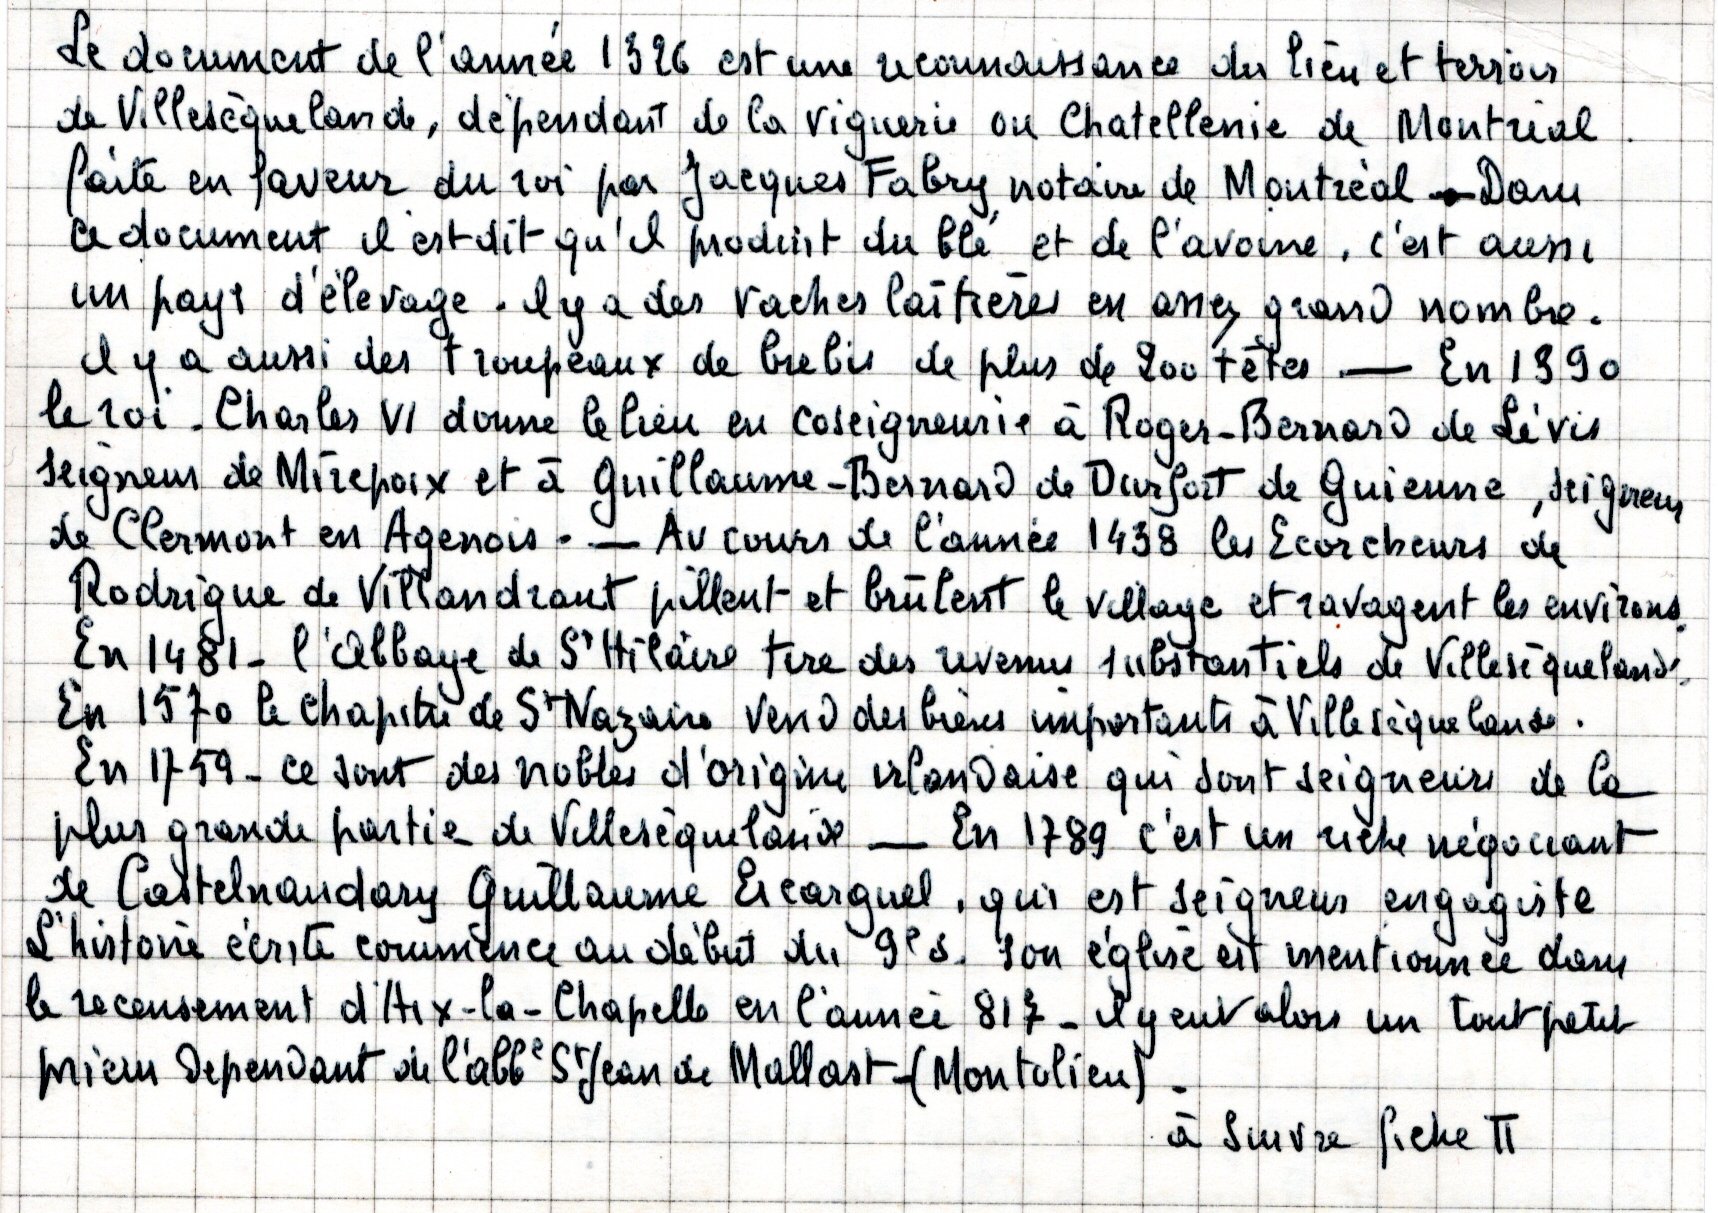 Le document de l'année 1326 est une reconnaissance du lieu et terroir
de Villesèquelande, dépendant de la viguerie ou Chatellenie de Montréal.
faite en faveur du roi par Jacques Fabry, notaire de Montréal — Dans
ce document il est dit qu'il produit du blé et de l'avoine, c'est aussi
un pays d'élevage. Il y a des vaches laitières en assez grand nombre.
il y a aussi des troupeaux de brebis de plus de 200 têtes. — En 1390
le roi. Charles VI donne le lieu en coseigneurie à Roger-Bernard de Lévis
seigneur de Mirepoix et à Guillaume-Bernard de Durfort de Guienne, seigneur
de Clermont en Agenois. — Au cours de l'année 1438 les Ecorcheurs de
Rodrigue de Villandraut pillent et brûlent le village et ravagent les environs.
En 1481 - l'Abbaye de St Hilaire tire des revenus substantiels de Villesèqueland.
En 1570 le chapitre de St Nazaire vend des biens importants à Villesèquelande.
En 1759 - ce sont des nobles d'origine irlandaise qui sont seigneurs de la
plus grande partie de Villesèquelande — En 1789 c'est un riche négociant
de Castelnaudary Guillaume Escarguel, qui est seigneur engagiste
L'histoire écrite commence au début du 9e s. son église est mentionnée dans
le recensement d'Aix-la-Chapelle en l'année 817 - il y eut alors un tout petit
prieu dependant de l'abbe St Jean de Mallast - (Montolieu) -
à suivre fiche II